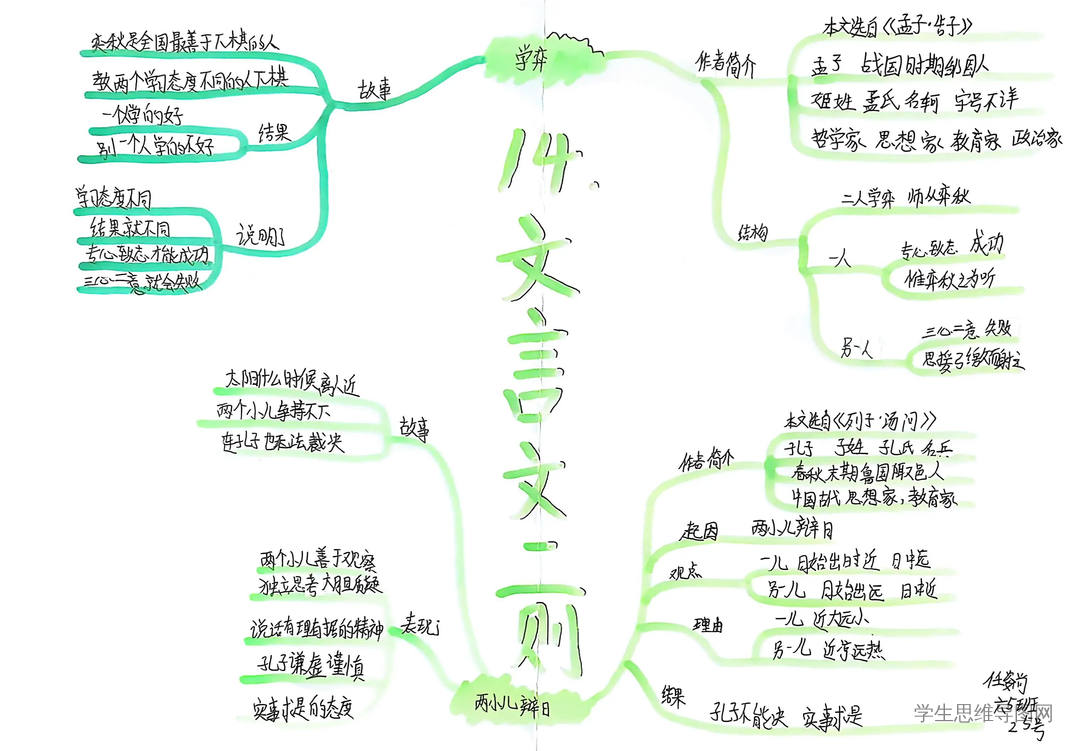 14.文言文二则
学弈
故事
奕秋是全国最善于下棋的人
教两个学习态度不同的人下棋
结果
一个学的好
别一个人学的不好
说明了
学习态度不同
结果就不同
专心致志才能成功
三心二意就会失败
作者简介
本文选自《孟子·告子》
孟子 战国时期邹国人
姬姓 孟氏 名轲 字号不详
哲学家 思想家 教育家 政治家
结构
二人学弈 师从弈秋
一人
专心致志 成功
惟弈秋之为听
另一人
三心二意 失败
思援弓缴而射之
两小儿辩日
故事
太阳什么时候离人近
两个小儿争持不下
连孔子也无法裁决
表现了
两个小儿善于观察
独立思考 大胆质疑
说话有理有据的精神
孔子谦虚谨慎
实事求是的态度
作者简介
本文选自《列子·汤问》
孔子 子姓 孔氏 名丘
春秋末期鲁国陬邑人
中国古代思想家,教育家
起因
两小儿辩日
观点
一儿 日始出时近 日中远
另一儿 日始出远 日中近
理由
一儿 近大远小
另一儿 近热远热
结果
孔子不能决 实事求是
六5班
25号
学生思维导图网